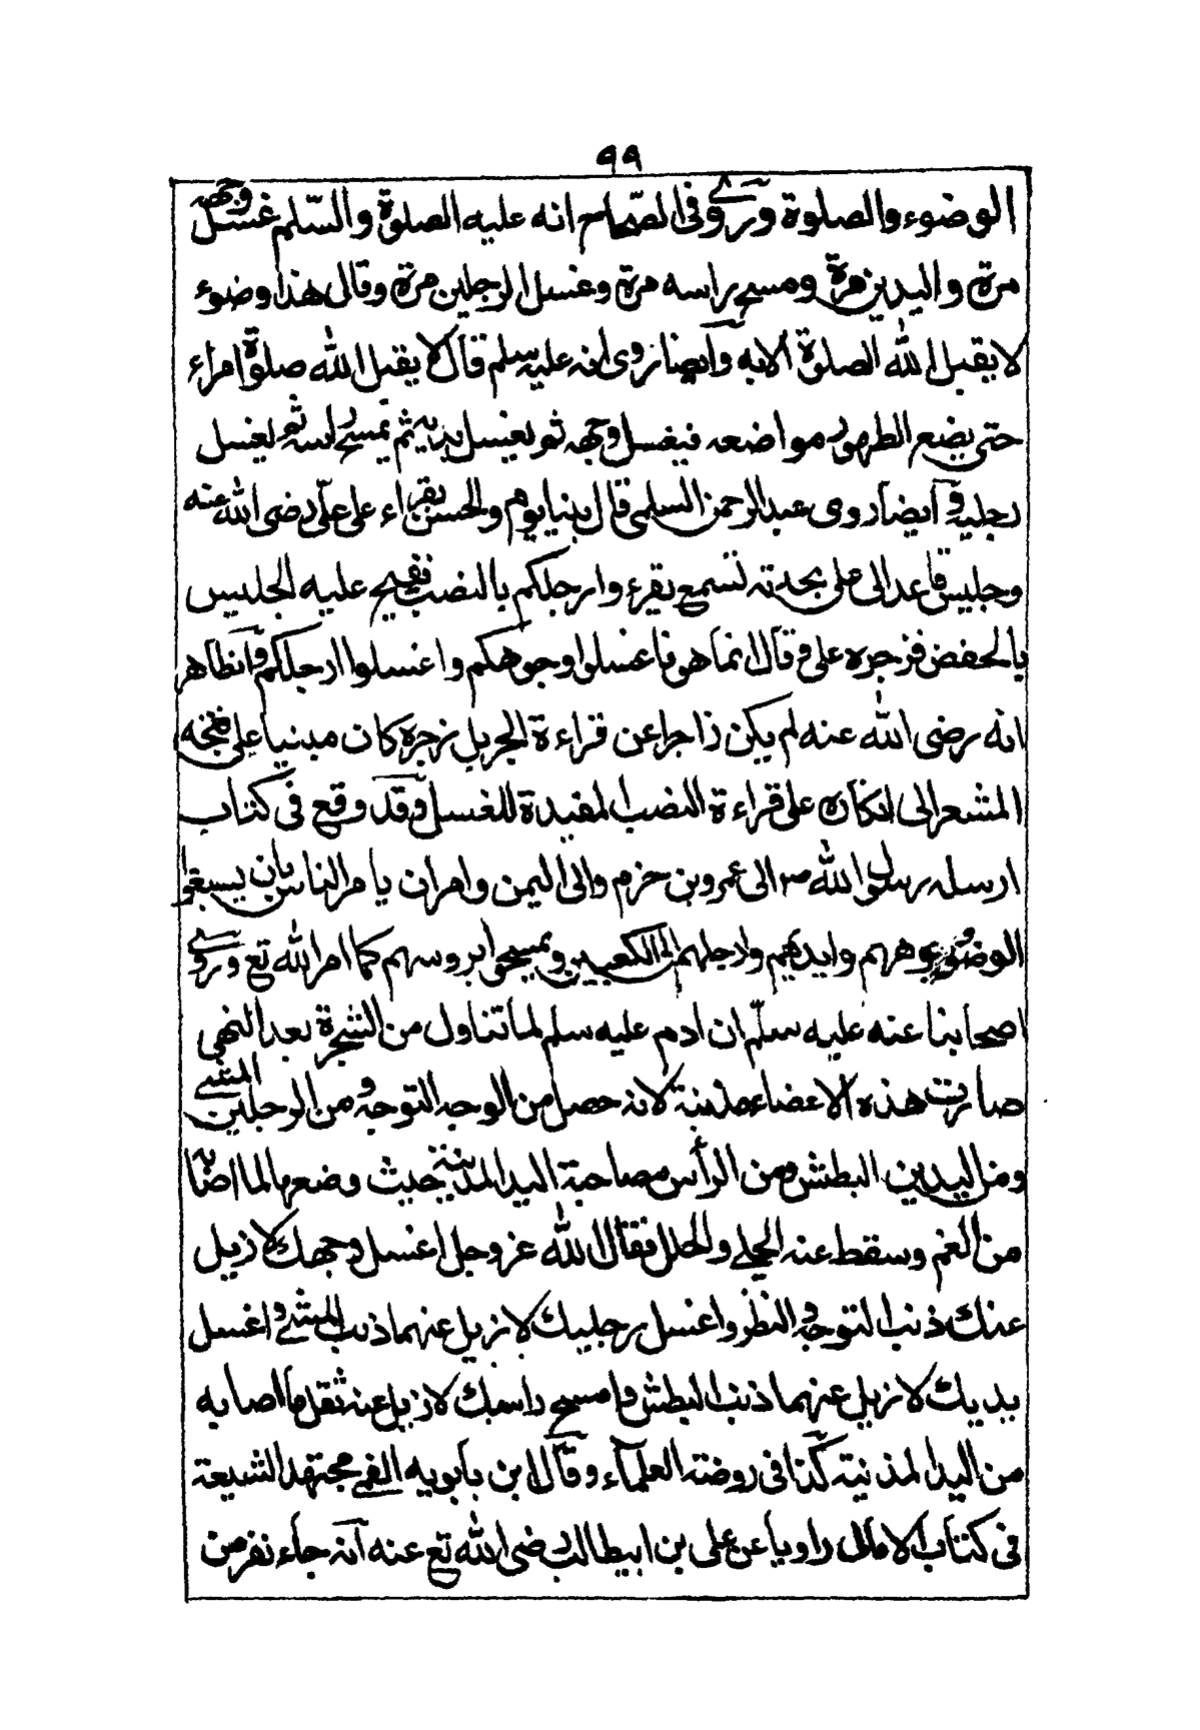 ٩٩
الوضوء والصلوة وروى فى الصحاح انه عليه الصلوة والسّلم غسل وجهه
مرة واليدين مرة ومسح براسه مرة وغسل الرجلين مرة وقال هذا وضوء
لا يقبل الله الصلوة الا به وايضا روى انه عليه سلم قال لا يقبل الله صلوة امراء
حتى يضع الطهور مواضعه فيغسل وجهه ثم يغسل يديه ثم يمسح راسه ثم يغسل
رجليه وايضا روى عبد الرحمن السلمى قال بينا يوم والحسن يقراء على علّى رضى الله عنه
وجليس قاعد الى على يحدثه تسمع يقرء وارجلكم بالنصب ففتح عليه الجليس
بالخفض فزجره على و قال انما هو فاغسلوا وجوهكم واغسلوا ارجلكم والظاهر
انه رضى الله عنه لم يكن زاجرا عن قراءة الجر بل زجره كان مبنيا على فتحه
المشعر الى انكاره على قراءة النصب المفيدة للغسل وقد وقع فى كتاب
ارسله رسول الله صـ الى عمرو بن حزم والى اليمن وامر ان يامر الناس بان يسبغوا
الوضوء وجوههم وايديهم وارجلهم الى الكعبين ويمسحوا بروسهم كما امر الله تع وروى
اصحابنا عنه عليه سلّم ان ادم عليه سلم لما تناول من الشجرة بعد النهى
صارت هذه الاعضاء مذنبة لانه حصل من الوجه التوجه ومن الرجلين المشى
ومن اليدين البطش ومن الرأس مصاحبة اليد المذنبة حيث وضعها لما اصابه
من الغم وسقط عنه الحلى والحلل فقال الله عز وجل اغسل وجهك لازيل
عنك ذنب التوجه والنظر واغسل رجليك لازيل عنهما ذنب المشى واغسل
يديك لازيل عنهما ذنب البطش وامسح راسك لازيل عنه ثقل ما اصابه
من اليد المذنبة كذا فى روضة العلماء وقال ابن بابويه القمى مجتهد الشيعة
فى كتاب الامالى راويا عن على بن ابيطالب رضى الله تع عنه انه جاء نفر من